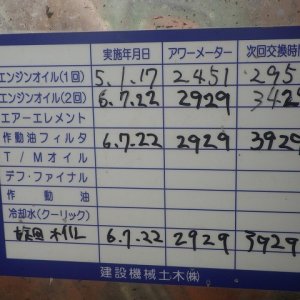 実施年月日 アワーメーター 次回交換時
エンジンオイル(1回) 5.1.17 2451 295
エンジンオイル(2回) 6.7.22 2929 342
エアーエレメント
作動油フィルタ 6.7.22 2929 3929
T/Mオイル
デフ・ファイナル
作動油
冷却水(クーリック)
オイル 6.7.22 2929 3929
建設機械土木㈱